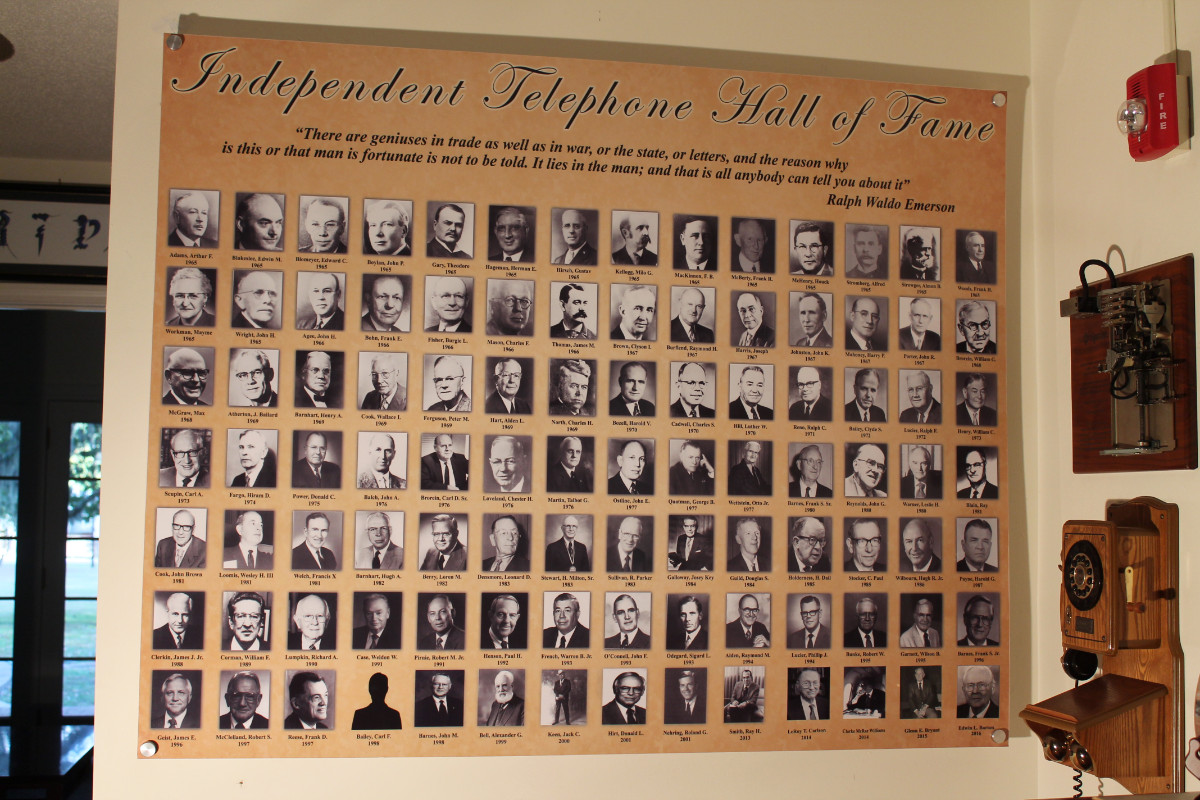 Independent Telephone Hall of Fame
“There are geniuses in trade as well as in war, or the state, or letters, and the reason why
is this or that man is fortunate is not to be told. It lies in the man; and that is all anybody can tell you about it”
Ralph Waldo Emerson
FIRE
Adams, Arthur F. Binkoius, Edwin M. Biemeyer, Edward C. Boylan, John P. Gary, Theodore Hageman, Herman E. Hirsch, Gustav Kellogg, Milo G. MacKinnon, F. B. McBerty, Frank R. Stromberg, Alfred Strowger, Almon B. Woods, Frank H.
1965 1965 1965 1965 1965 1965 1965 1965 1965 1965 1965 1965 1965 1965
Workman, Mayne Wright, John H. Agee, John H. Bohn, Frank E. Fisher, Burgis L. Mason, Charles F. Thomas, James M. Brown, Clyson I. Burfiend, Raymond H. Harris, Joseph Johnston, John K. Mahoney, Harry F. Porter, John K.
1965 1965 1966 1966 1966 1966 1966 1967 1967 1967 1967 1967 1967 1968
McGraw, Max Atherton, J. Ballard Barnhart, Henry A. Cook, Wallace L. Ferguson, Peter M. Hart, Alden L. North, Charles H. Dezell, Harold V. Cadwell, Charles S. Hill, Luther W. Ross, Ralph C. Bailey, Clyde S. Lozier, Ralph F. Henry, William C.
1968 1969 1969 1969 1969 1969 1969 1970 1970 1970 1971 1972 1972 1973
Scupin, Carl A. Fargo, Hiram D. Power, Donald C. Balch, John A. Brorein, Carl D. Sr. Loveland, Chester H. Martin, Talbot G. Ostline, John E. Quatman, George B. Wettstein, Otto Jr. Barnes, Frank S. Sr. Reynolds, John G. Warner, Leslie H. Blain, Ray
1973 1974 1975 1976 1976 1976 1976 1977 1977 1977 1980 1980 1980 1981
Cook, John Brown Loomis, Wesley H. III Welch, Francis X Barnhart, Hugh A. Berry, Loren M. Densmore, Leonard D. Stewart, H. Milton, Sr. Sullivan, R. Parker Galloway, Josey Key Guild, Douglas S. Holderness, H. Dail Stocker, C. Paul Wilbourn, Hugh R. Jr. Payne, Harold G.
1981 1981 1981 1982 1982 1983 1983 1983 1984 1984 1985 1985 1986 1987
Clerkin, James J. Jr. Corman, William F. Lumpkin, Richard A. Case, Weldon W. Pirnie, Robert M. Jr. Henson, Paul H. French, Warren B. Jr. O'Connell, John F. Odegard, Sigurd L. Alden, Raymond M. Lozier, Phillip J. Bucke, Robert W. Garnett, Wilson B. Barnes, Frank S. Jr.
1988 1989 1990 1991 1991 1992 1993 1993 1993 1994 1994 1995 1995 1996
Geist, James E. McClelland, Robert S. Reese, Frank D. Bailey, Carl F. Barnes, John M. Bell, Alexander G. Keen, Jack C. Hirt, Donald L. Nehring, Roland G. Smith, Ray H. LeRoy T. Carlson Clarke McRae Williams Glenn E. Bryant
1996 1997 1997 1998 1998 1999 2000 2001 2001 2013 2014 2015 2016